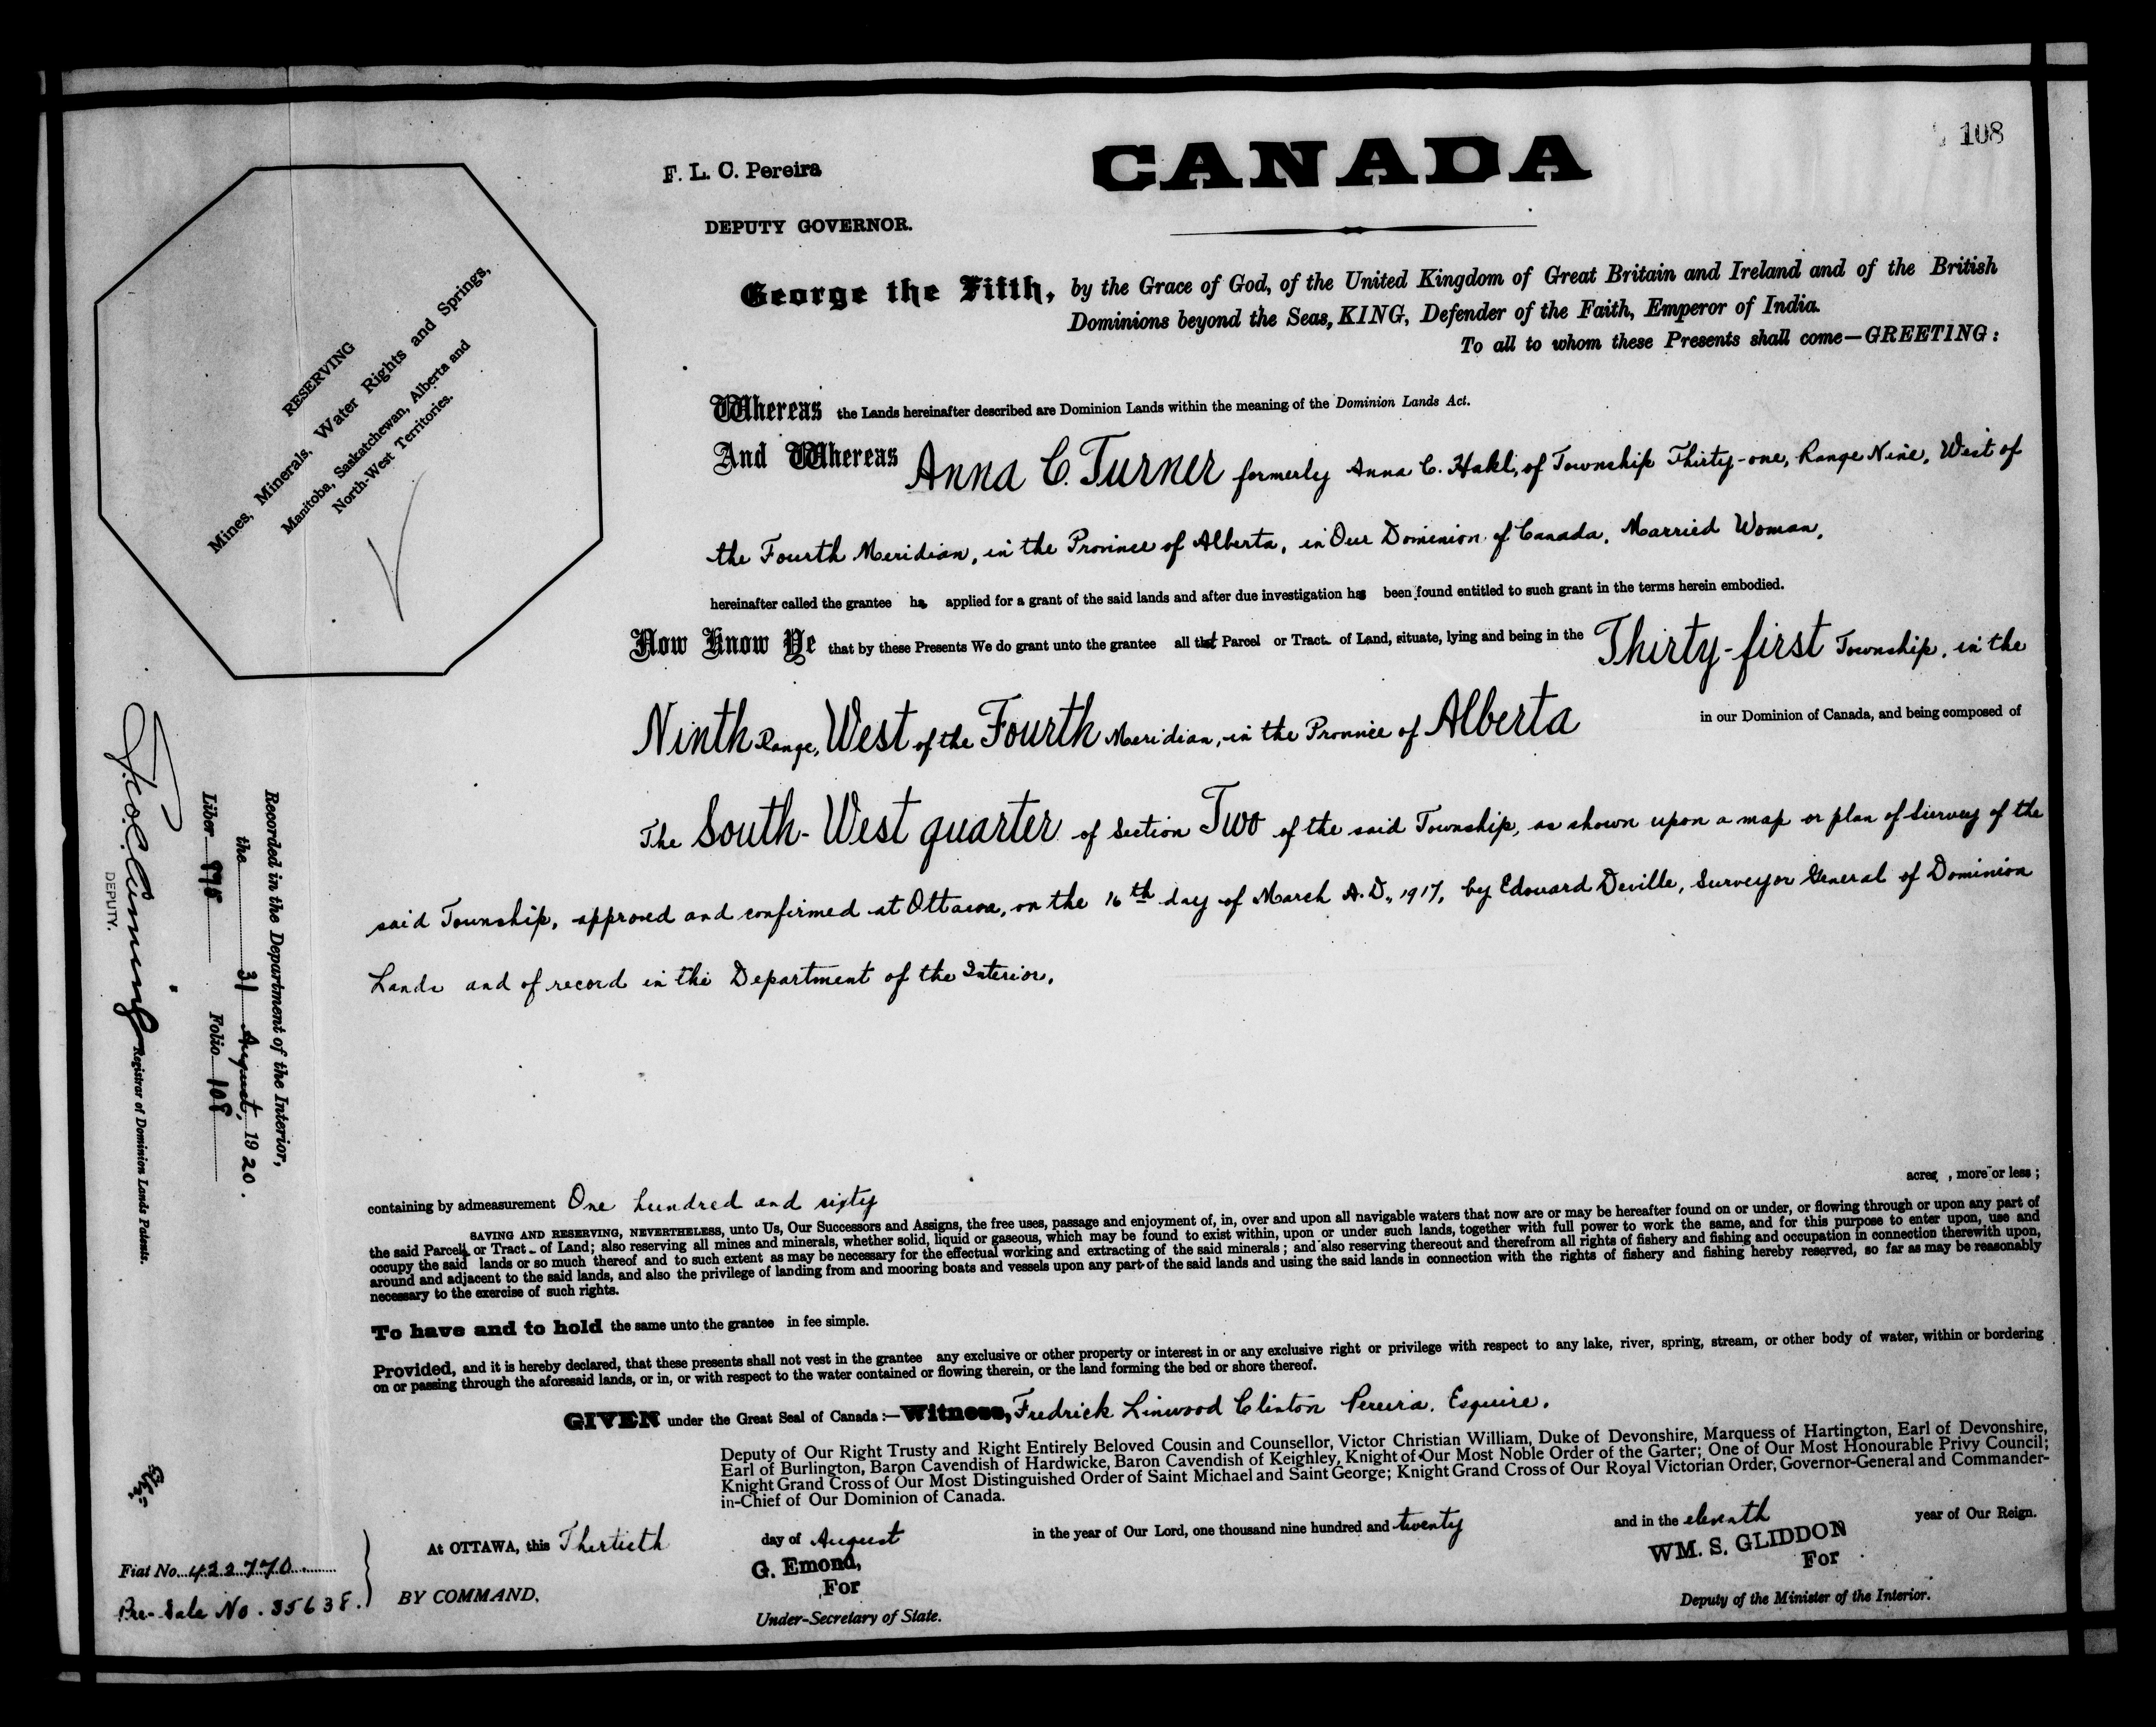 108
F. L. C. Pereira
CANADA
DEPUTY GOVERNOR.
George the Fifth, by the Grace of God, of the United Kingdom of Great Britain and Ireland and of the British
Dominions beyond the Seas, KING, Defender of the Faith, Emperor of India.
To all to whom these Presents shall come—GREETING:
RESERVING
Mines, Minerals, Water Rights and Springs,
Manitoba, Saskatchewan, Alberta and
North-West Territories.
Whereas the Lands hereinafter described are Dominion Lands within the meaning of the Dominion Lands Act.
And Whereas Anna C. Turner formerly Anna C. Hakl, of Township Thirty-one, Range Nine, West of
the Fourth Meridian, in the Province of Alberta, in Our Dominion of Canada, Married Woman,
hereinafter called the grantee has applied for a grant of the said lands and after due investigation has been found entitled to such grant in the terms herein embodied.
Now Know Ye that by these Presents We do grant unto the grantee all that Parcel or Tract of Land, situate, lying and being in the Thirty-first Township, in the
Ninth Range, West of the Fourth Meridian, in the Province of Alberta in our Dominion of Canada, and being composed of
The South-West quarter of Section Two of the said Township, as shown upon a map or plan of Survey of the
said Township, approved and confirmed at Ottawa, on the 16th day of March A.D., 1917, by Edouard Deville, Surveyor General of Dominion
Lands and of record in the Department of the Interior.
containing by admeasurement One hundred and sixty acres, more or less;
SAVING AND RESERVING, NEVERTHELESS, unto Us, Our Successors and Assigns, the free uses, passage and enjoyment of, in, over and upon all navigable waters that now are or may be hereafter found on or under, or flowing through or upon any part of
the said Parcel or Tract of Land; also reserving all mines and minerals, whether solid, liquid or gaseous, which may be found to exist within, upon or under such lands, together with full power to work the same, and for this purpose to enter upon, use and
occupy the said lands or so much thereof and to such extent as may be necessary for the effectual working and extracting of the said minerals; and also reserving thereout and therefrom all rights of fishery and fishing and occupation in connection therewith upon,
around and adjacent to the said lands, and also the privilege of landing from and mooring boats and vessels upon any part of the said lands and using the said lands in connection with the rights of fishery and fishing hereby reserved, so far as may be reasonably
necessary to the exercise of such rights.
To have and to hold the same unto the grantee in fee simple.
Provided, and it is hereby declared, that these presents shall not vest in the grantee any exclusive or other property or interest in or any exclusive right or privilege with respect to any lake, river, spring, stream, or other body of water, within or bordering
on or passing through the aforesaid lands, or in, or with respect to the water contained or flowing therein, or the land forming the bed or shore thereof.
GIVEN under the Great Seal of Canada:—Witness, Fredrick Linwood Clinton Pereira, Esquire,
Deputy of Our Right Trusty and Right Entirely Beloved Cousin and Counsellor, Victor Christian William, Duke of Devonshire, Marquess of Hartington, Earl of Devonshire,
Earl of Burlington, Baron Cavendish of Hardwicke, Baron Cavendish of Keighley, Knight of Our Most Noble Order of the Garter; One of Our Most Honourable Privy Council;
Knight Grand Cross of Our Most Distinguished Order of Saint Michael and Saint George; Knight Grand Cross of Our Royal Victorian Order, Governor-General and Commander-
in-Chief of Our Dominion of Canada.
At OTTAWA, this Thirtieth day of August in the year of Our Lord, one thousand nine hundred and twenty and in the eleventh year of Our Reign.
BY COMMAND,
G. Emond,
For
Under-Secretary of State.
WM. S. GLIDDON
For
Deputy of the Minister of the Interior.
Recorded in the Department of the Interior,
the 31 August, 1920.
Liber 898 Folio 108
DEPUTY. Registrar of Dominion Lands Patents.
Fiat No. 422770
Pre-Sale No. 35638.